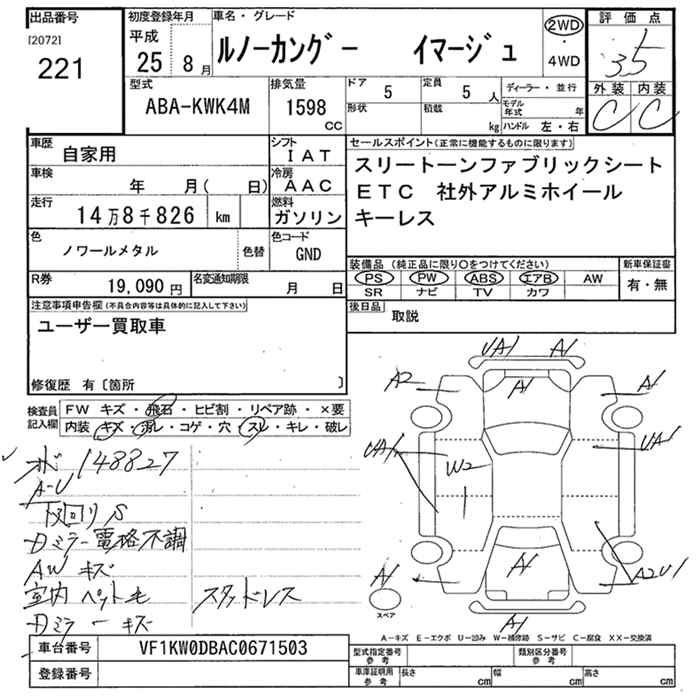 出品番号 初度登録年月 車名・グレード 評価点
[2072]
221
平成 25 8月 ルノーカングー イマージュ 2WD・4WD 3.5
型式 排気量 ドア 5 定員 5人 ディーラー・並行 外装 内装
ABA-KWK4M 1598 CC 形状 積載 kg モデル年式 年 ハンドル 左・右 C C
車歴 自家用 シフト IAT
車検 年 月( 日) 冷房 AAC
走行 14万8千826 km 燃料 ガソリン
色 ノワールメタル 色替 色コード GND
R券 19,090円 名変通知期限 月 日
セールスポイント(正常に機能するものに限ります)
スリートーンファブリックシート
ETC 社外アルミホイール
キーレス
装備品(純正品に限り○をつけてください) 新車保証書
PS PW ABS エアB AW 有・無
SR ナビ TV カワ
後日品 取説
注意事項申告欄(不具合内容等は具体的に記入して下さい)
ユーザー買取車
修復歴 有〔箇所 〕
検査員記入欄 FW キズ・飛石・ヒビ割・リペア跡・×要
内装 キズ・汚レ・コゲ・穴・スレ・キレ・破レ
148827
A-U
下回りS
Dミラー電格不調
AW キズ
室内 ペット毛 スタッドレス
Dミラーキズ
UA1 A1
A2 A1 A1
UA1 W2 UA1
A1 A1 A2U1
スペア A1
A-キズ E-エクボ U-凹み W-補修跡 S-サビ C-腐食 XX-交換済
車台番号 VF1KW0DBAC0671503 型式指定番号 参考 類別区分番号 参考
登録番号 車庫証明用 参考 長さ cm 幅 cm 高さ cm